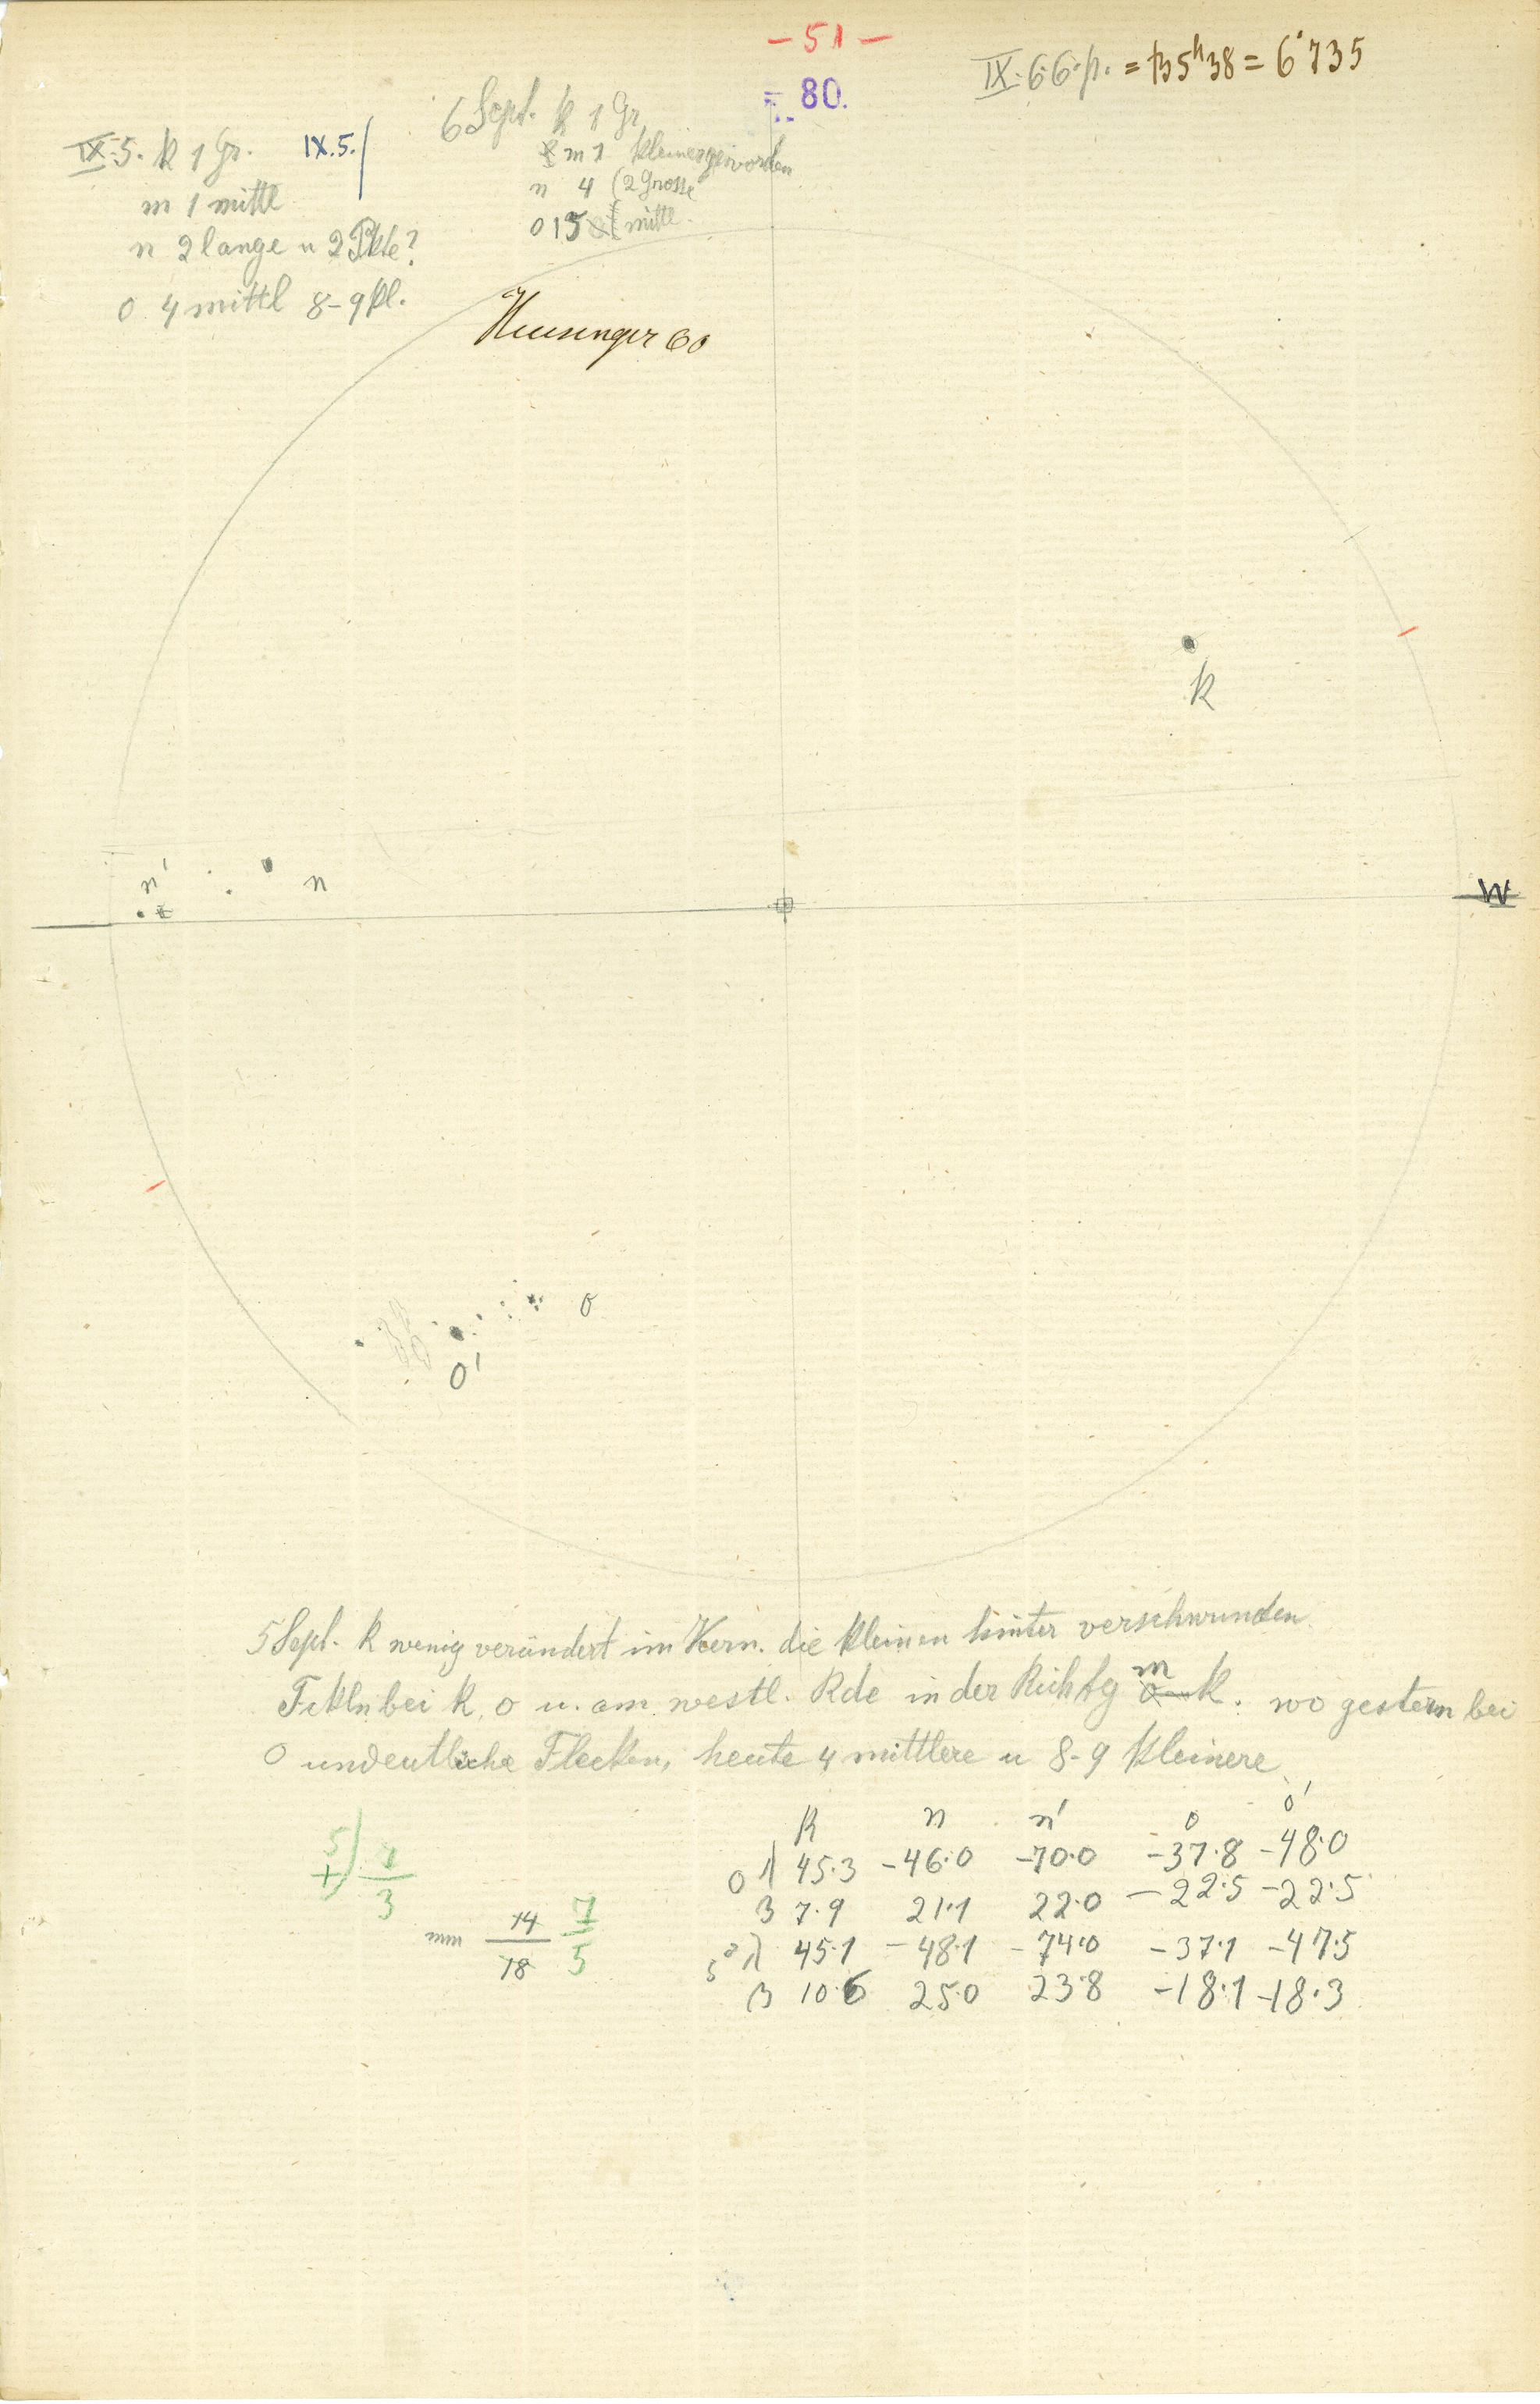 - 51 -
= 80.
IX. 6. 6. p. = 5h38 = 6.735
IX. 5. k 1 Gr.
m 1 mittl
n 2 lange u 2 Pkte?
o 4 mittl 8-9 kl.
IX.5.
6 Sept. k 1 Gr
m 1 kleiner geworden
n 4 (2 Grosse
o 15 mittl.
Heusinger 60
k
n'
n
W
o
o'
5 Sept. k wenig verändert im Kern. die kleinen hinter verschwunden
Fckln bei k, o u. am westl. Rde in der Richtg m k. wo gestern bei
o undeutliche Flecken, heute 4 mittlere u 8-9 kleinere
5 + ) 1/3
mm 14/18 7/5
k n n' o o'
0 λ 45.3 -46.0 -70.0 -37.8 -48.0
β 7.9 21.1 22.0 -22.5 -22.5
λ 45.1 -48.1 -74.0 -37.1 -47.5
β 10.6 25.0 23.8 -18.1 -18.3